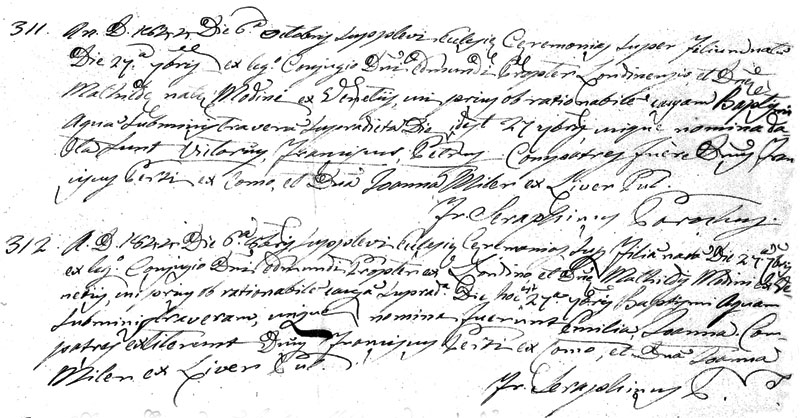 311. An. D. 1822 Die 6.ª Octobris supplevi Eclesiæ Ceremonias super Filium natū
Die 27.ª 7bris ex leg.º Conjugio Dni Edmundi Propter Londinensis, et Dnæ
Mathildæ natæ Modini ex Venetiis, cui prius ob rationabile causam Baptismi
Aqua subministravera supradicta Die, id est 27 7bris, cuique nomina da-
ta sunt Hilarius, Franciscus, Petrus. Compatres fuere Dnus Fran-
ciscus Perti ex Como, et Dna Joanna Miler ex Liver Pul.
Fr. Seraphinus Parochus.
312. A. D. 1822 Die 6.ª 8bris supplevi Eclesiæ Ceremonias sup. Filia nata Die 27.ª 7bris
ex leg.º Conjugio Dni Edmundi Propter ex Londino et Dnæ Mathildæ Modini ex Ve-
netiis, cui prius ob rationabile causa suprad.ª Die, hoc est 27.ª 7bris Baptismi Aquam
subministraveram, cuique nomina fuerunt Emilia, Joanna. Com-
patres extiterunt Dnus Franciscus Perti ex Como, et Dna Joanna
Miler ex Liver Pul.
Fr. Seraphinus P.